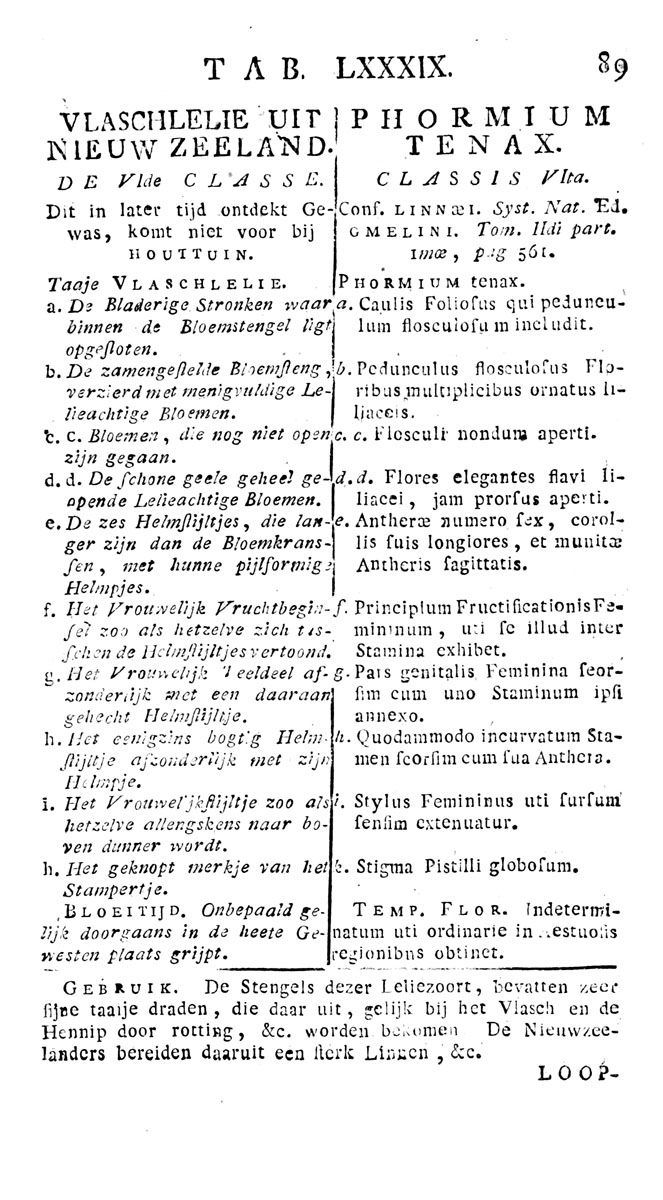 TAB. LXXXIX. 89
VLASCHLELIE UIT
NIEUW ZEELAND.
DE VIde CLASSE.
Dit in later tijd ontdekt Ge-
was, komt niet voor bij
HOUTTUIN.
Taaje VLASCHLELIE.
a. De Bladerige Stronken waar
binnen de Bloemstengel ligt
opgeſloten.
b. De zamengeſtelde Bloemſteng,
verzierd met menigvuldige Le-
lieachtige Bloemen.
c. c. Bloemen, die nog niet open
zijn gegaan.
d. d. De ſchone geele geheel ge-
opende Lelieachtige Bloemen.
e. De zes Helmſtijltjes, die lan-
ger zijn dan de Bloemkrans-
ſen, met hunne pijlformige
Helmpjes.
f. Het Vrouwelijk Vruchtbegin-
ſel zoo als hetzelve zich tus-
ſchen de Helmſtijltjes vertoond.
g. Het Vrouwelijk Teeldeel af-
zonderlijk met een daaraan
gehecht Helmſtijltje.
h. Het eenigzins bogtig Helm-
ſtijltje afzonderlijk met zijn
Helmpje.
i. Het Vrouwelijkſtijltje zoo als
hetzelve allengskens naar bo-
ven dunner wordt.
h. Het geknopt merkje van het
Stampertje.
BLOEITIJD. Onbepaald ge-
lijk doorgaans in de heete Ge-
westen plaats grijpt.
PHORMIUM
TENAX.
CLASSIS VIta.
Conf. LINNÆI. Syst. Nat. Ed.
GMELINI. Tom. IIdi part.
imæ, pag 561.
PHORMIUM tenax.
a. Caulis Folioſus qui peduncu-
lum floſculoſum includit.
b. Pedunculus floſculoſus Flo-
ribus multiplicibus ornatus li-
liaceis.
c. c. Floſculi nondum aperti.
d. d. Flores elegantes flavi li-
liacei, jam prorſus aperti.
e. Antheræ numero ſex, corol-
lis ſuis longiores, et munitæ
Antheris ſagittatis.
f. Principium Fructificationis Fe-
mininum, uti ſe illud inter
Stamina exhibet.
g. Pars genitalis Feminina ſeor-
ſim cum uno Staminum ipſi
annexo.
h. Quodammodo incurvatum Sta-
men ſeorſim cum ſua Anthera.
i. Stylus Femininus uti ſurſum
ſenſim extenuatur.
k. Stigma Pistilli globoſum.
TEMP. FLOR. Indetermi-
natum uti ordinarie in Aestuoſis
regionibus obtinet.
GEBRUIK. De Stengels dezer Leliezoort, bevatten zeer
fijne taaije draden, die daar uit, gelijk bij het Vlasch en de
Hennip door rotting, &c. worden bekomen De Nieuwzee-
landers bereiden daaruit een ſterk Linnen, &c.
LOOP-